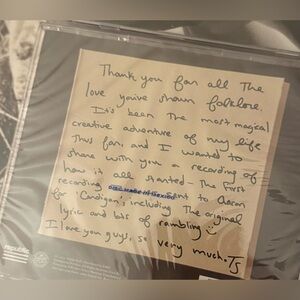 Thank you for all the
love you've shown folklore.
It's been the most magical
creative adventure of my life
thus far, and I wanted to
share with you a recording of
how it all started - the first
recording sent to Aaron
for 'Cardigan', including the original
lyric and bits of rambling :)
I love you guys, so very much. TS
republic